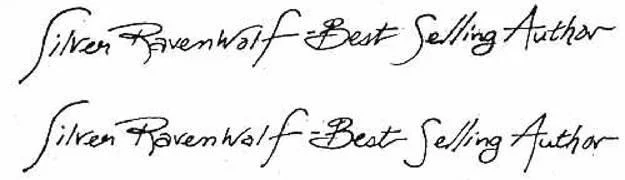 Silver RavenWolf = Best Selling Author
Silver RavenWolf = Best Selling Author